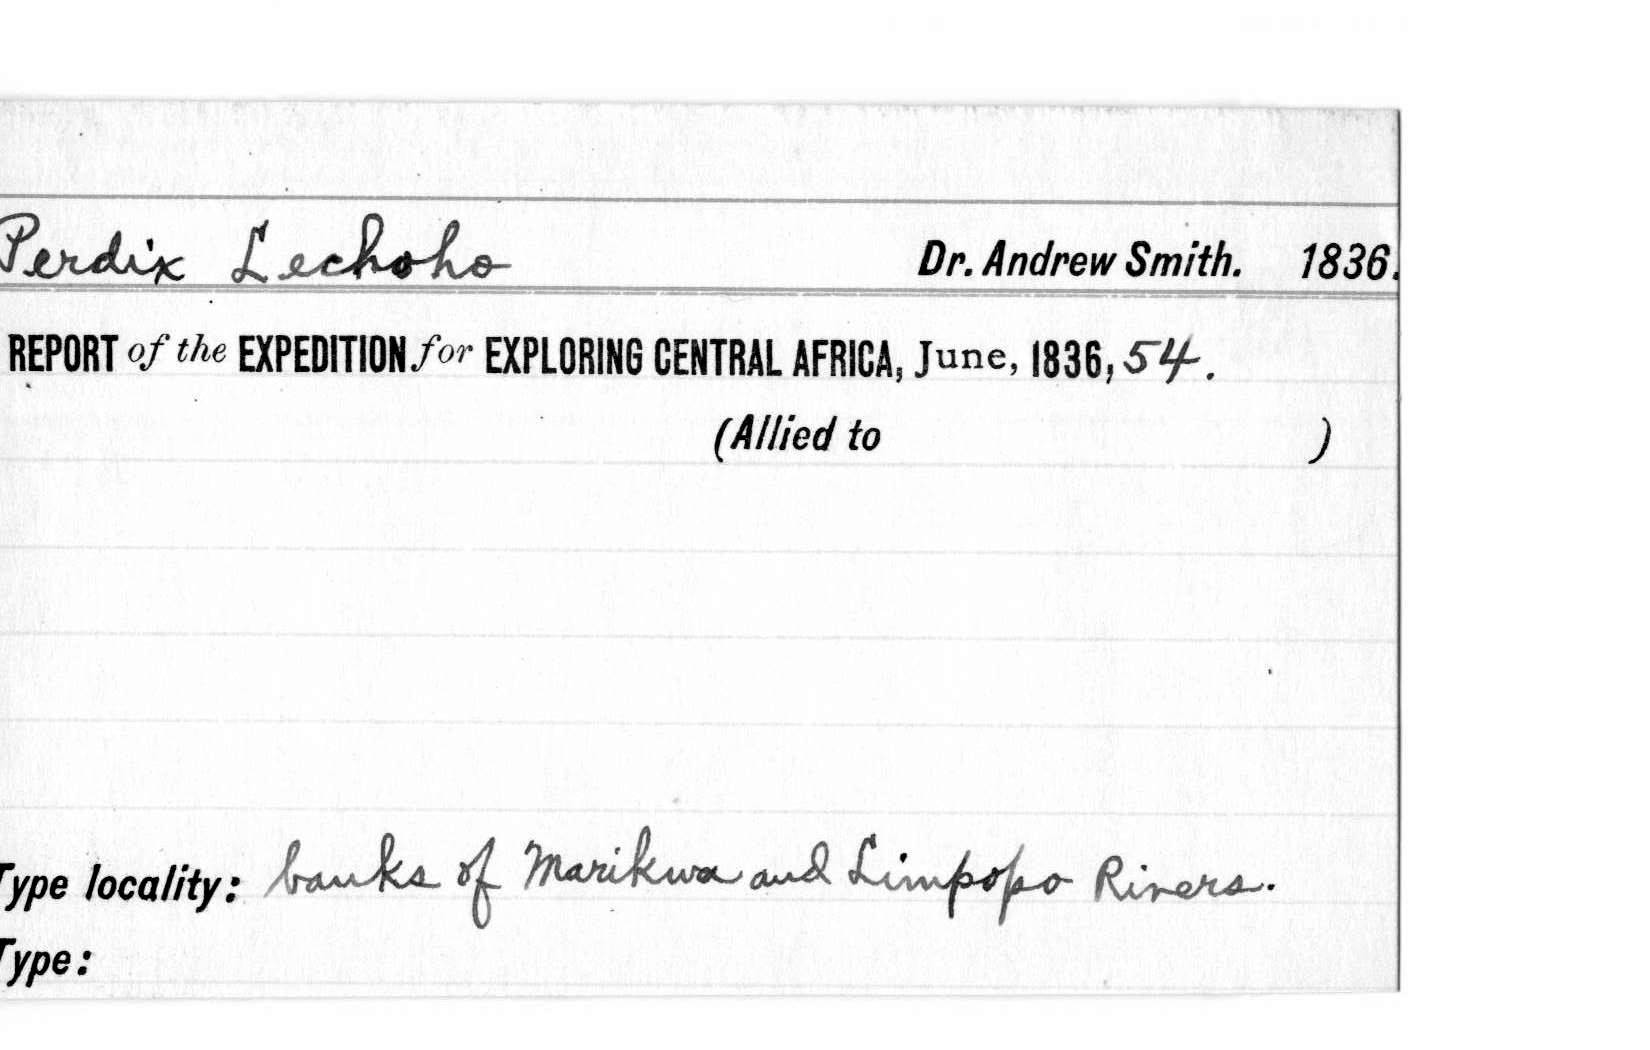 Perdix Lechoho Dr. Andrew Smith. 1836.
REPORT of the EXPEDITION for EXPLORING CENTRAL AFRICA, June, 1836, 54.
(Allied to )
Type locality: banks of Marikwa and Limpopo Rivers.
Type: